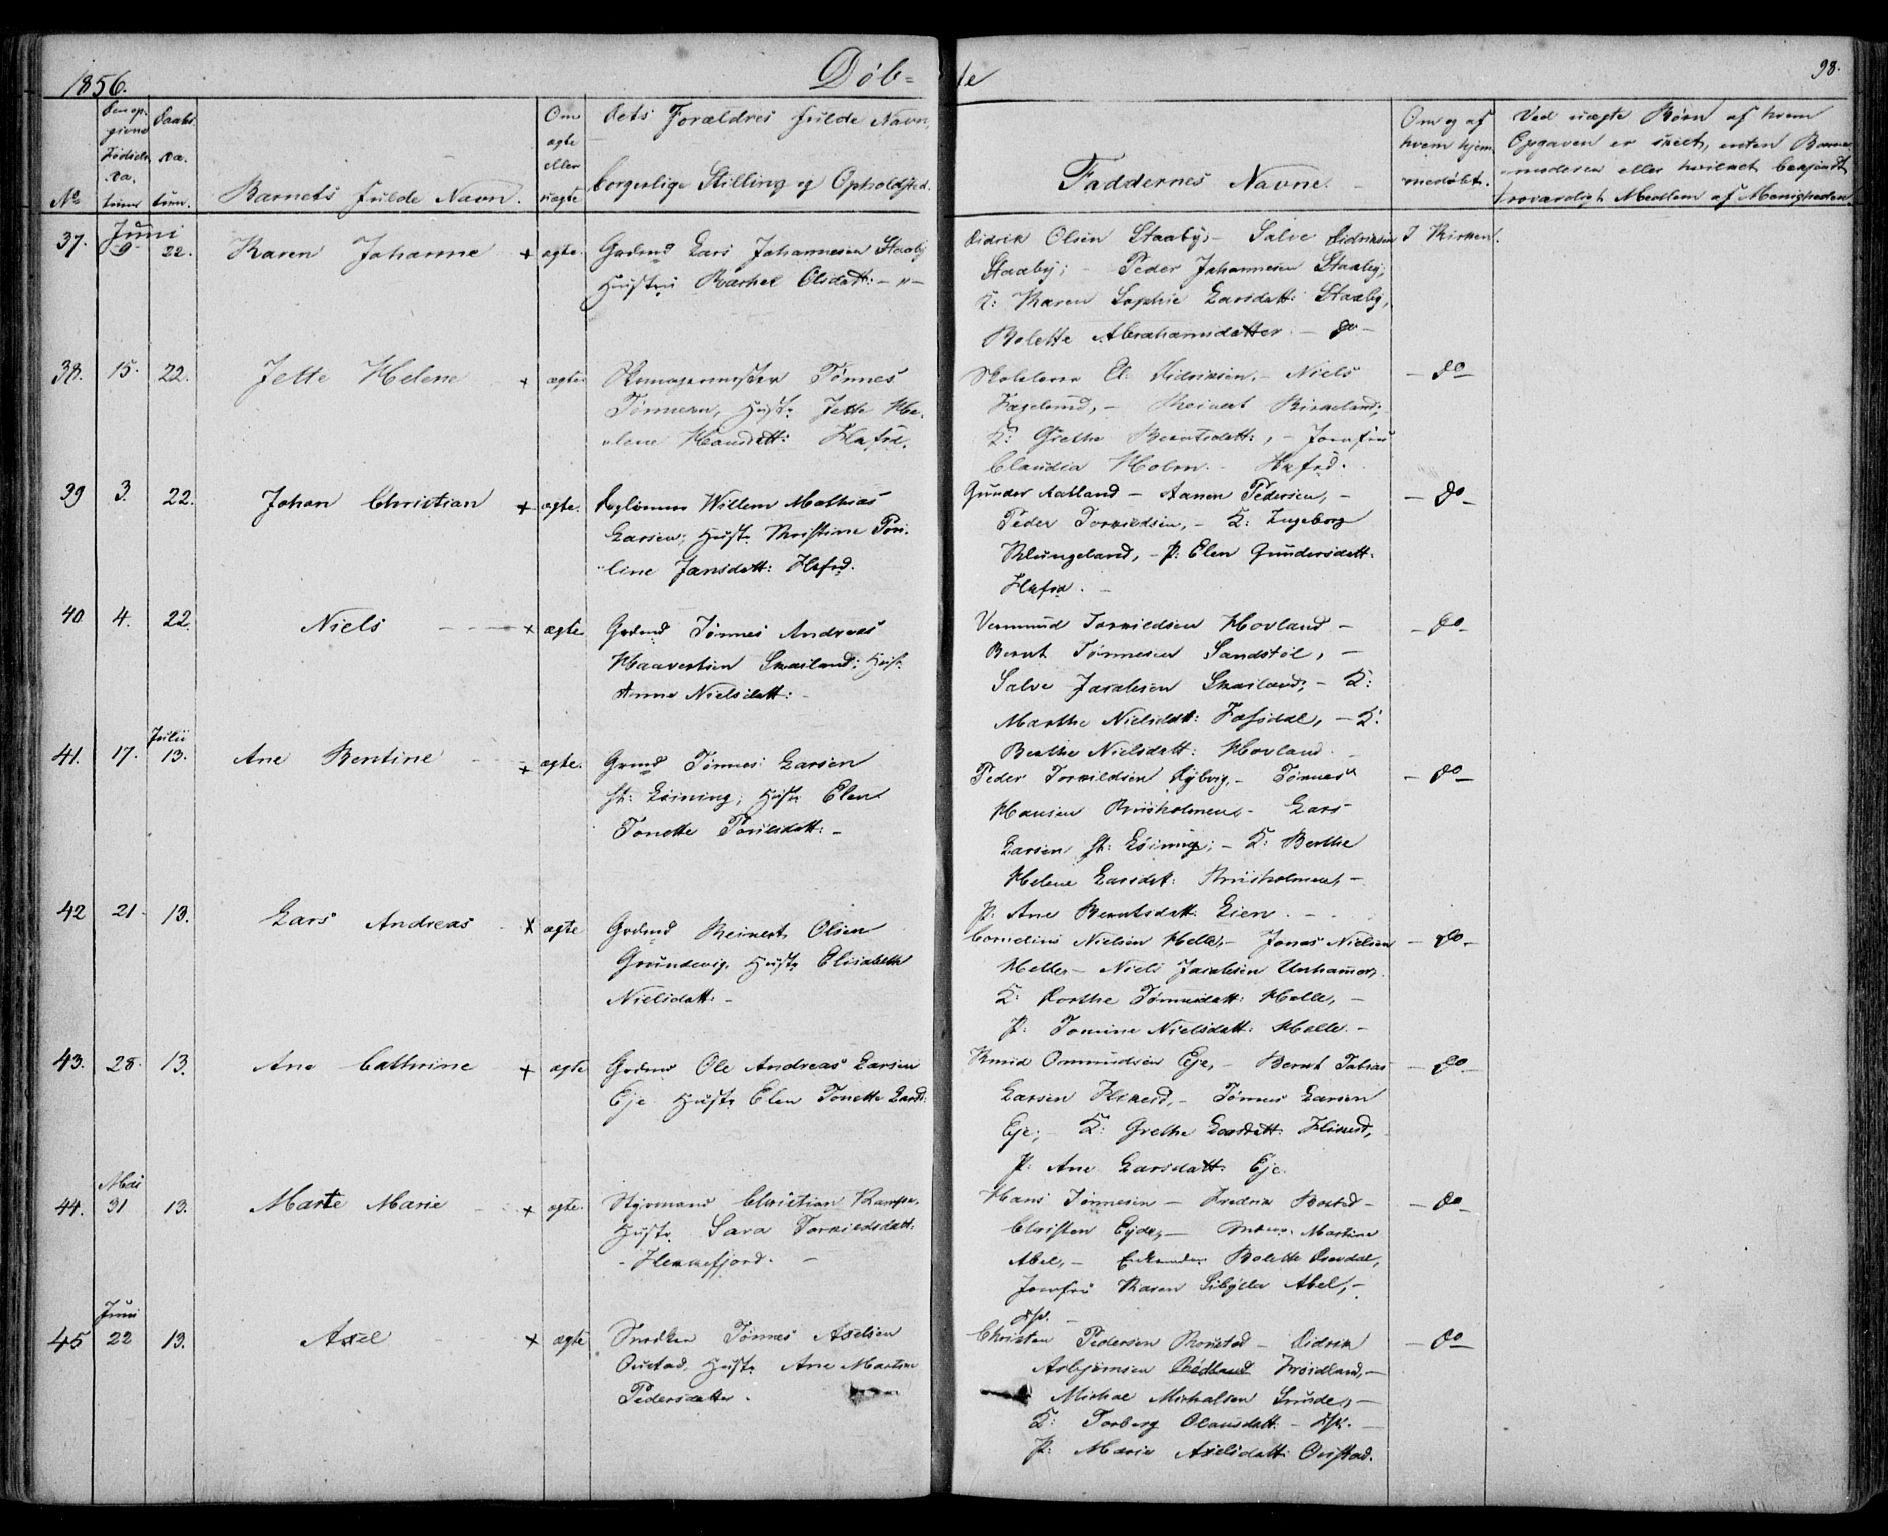 1856.
Døb-
te
98.
No
Den op-
givne
Fødsels
Da-
tum
Daabs
Da-
tum.
Barnets fulde Navn.
Om
ægte
eller
uægte
Dets Forældres fulde Navn,
borgerlige Stilling og Opholdsted.
Faddernes Navne.
Om og af
hvem hjem-
medøbt.
Ved uægte Børn af hvem
Opgaven er skeet, enten Barne-
moderen eller hvilket bekjendt
troværdigt Medlem af Menigheden
37.
Juni
9.
22.
Karen Johanne
ægte.
Grdmd Lars Johannesen Staaby
Hustru Rachel Olsdatt: - " -
Didrik Olsen Staaby, - Salve Didriksen
Staaby; - Peder Johannesen Staaby,
K: Karen Sophie Larsdatt: Staaby,
Bolette Abrahamsdatter - do -
I Kirken.
38. 15. 22.
Jette Helene
ægte
Skomagermester Tønnes
Tønnesen, Hust: Jette He-
lene Hansdatt:
Skolelærer El: Didriksen, - Niels
Reinert Birkeland;
K: Grethe Berntsdatt:, - Jomfru
Claudia Holm.
- do -
39 3. 22.
Johan Christian
ægte.
Willem Mathias
Larsen; Hust: Christine Pou-
line Jansdatt:
Gunder Aatland - Aanen Pedersen, -
Peder Torkildsen, - K: Ingeborg
Klungeland, - P: Elen Gundersdatt:
- do -
40 4. 22.
Niels
ægte
Grdmd Tønnes Andreas
Haavorsen Skailand; Hust:
Anne Nielsdatt: -
Vermund Torkildsen Hovland -
Bernt Tønnesen Sandstøl, -
Salve Jacobsen Skailand, - K:
Marthe Nielsdatt: - K:
Berthe Nielsdatt: Hovland.
- do -
41. 17.
Julii
13.
Ane Bentine
ægte.
Grmd Tønnes Larsen
St: Løining, Hustr Elen
Tonette Poulsdatt: -
Peder Torkildsen Nyborg, - Tønnes
Hansen - Lars
Larsen St: Løining; - K: Berthe
Helene Larsdat:
P: Ane Berntsdatt: Lien.
- do -
42 21. 13.
Lars Andreas
ægte
Grdmd Reinert Olsen
Grundevig, Hustr Elisabeth
Nielsdatt: -
Cornelius Nielsen Helle, - Jonas Nielsen
Helle, - Niels Jacobsen Urhammer,
K: Dorthe Tønnesdatt: Helle, -
P: Tomine Nielsdatt: Helle. -
- do -
43. 28. 13.
Ane Cathrine
ægte
Grdmd Ole Andreas Larsen
Eje Hustr Elen Tonette Larsd:
Knud Ommundsen Eje, - Bernt Tobias
Larsen - Tønnes Larsen
Eje; - K: Grethe Larsdatt:
P: Ane Larsdatt: Eje.
- do -
44.
Mai
31
13.
Marte Marie
ægte.
Styrmand Christian
Hustr. Sara Torkildsdatt:
Flekkefjord. -
Hans Tønnesen - Fredrik -
Christen Eyde, - Martine
Abel, - Bolette
Jomfru Karen Sibylla Abel, -
- do -
45
Juni
22
13.
Axel
ægte
Snedker Tønnes Axelsen
Hustr Ane Martine
Pedersdatter.
Christen Pedersen - Didrik
Asbjørnsen Frøidland, -
Michal Michalsen -
K: Torborg Olausdatt: -
P: Marie Axelsdatt:
- do -